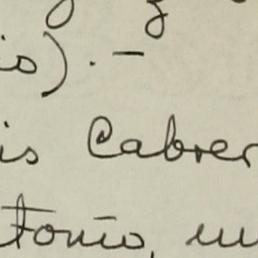 io). -
is Cabrer
tonio, un